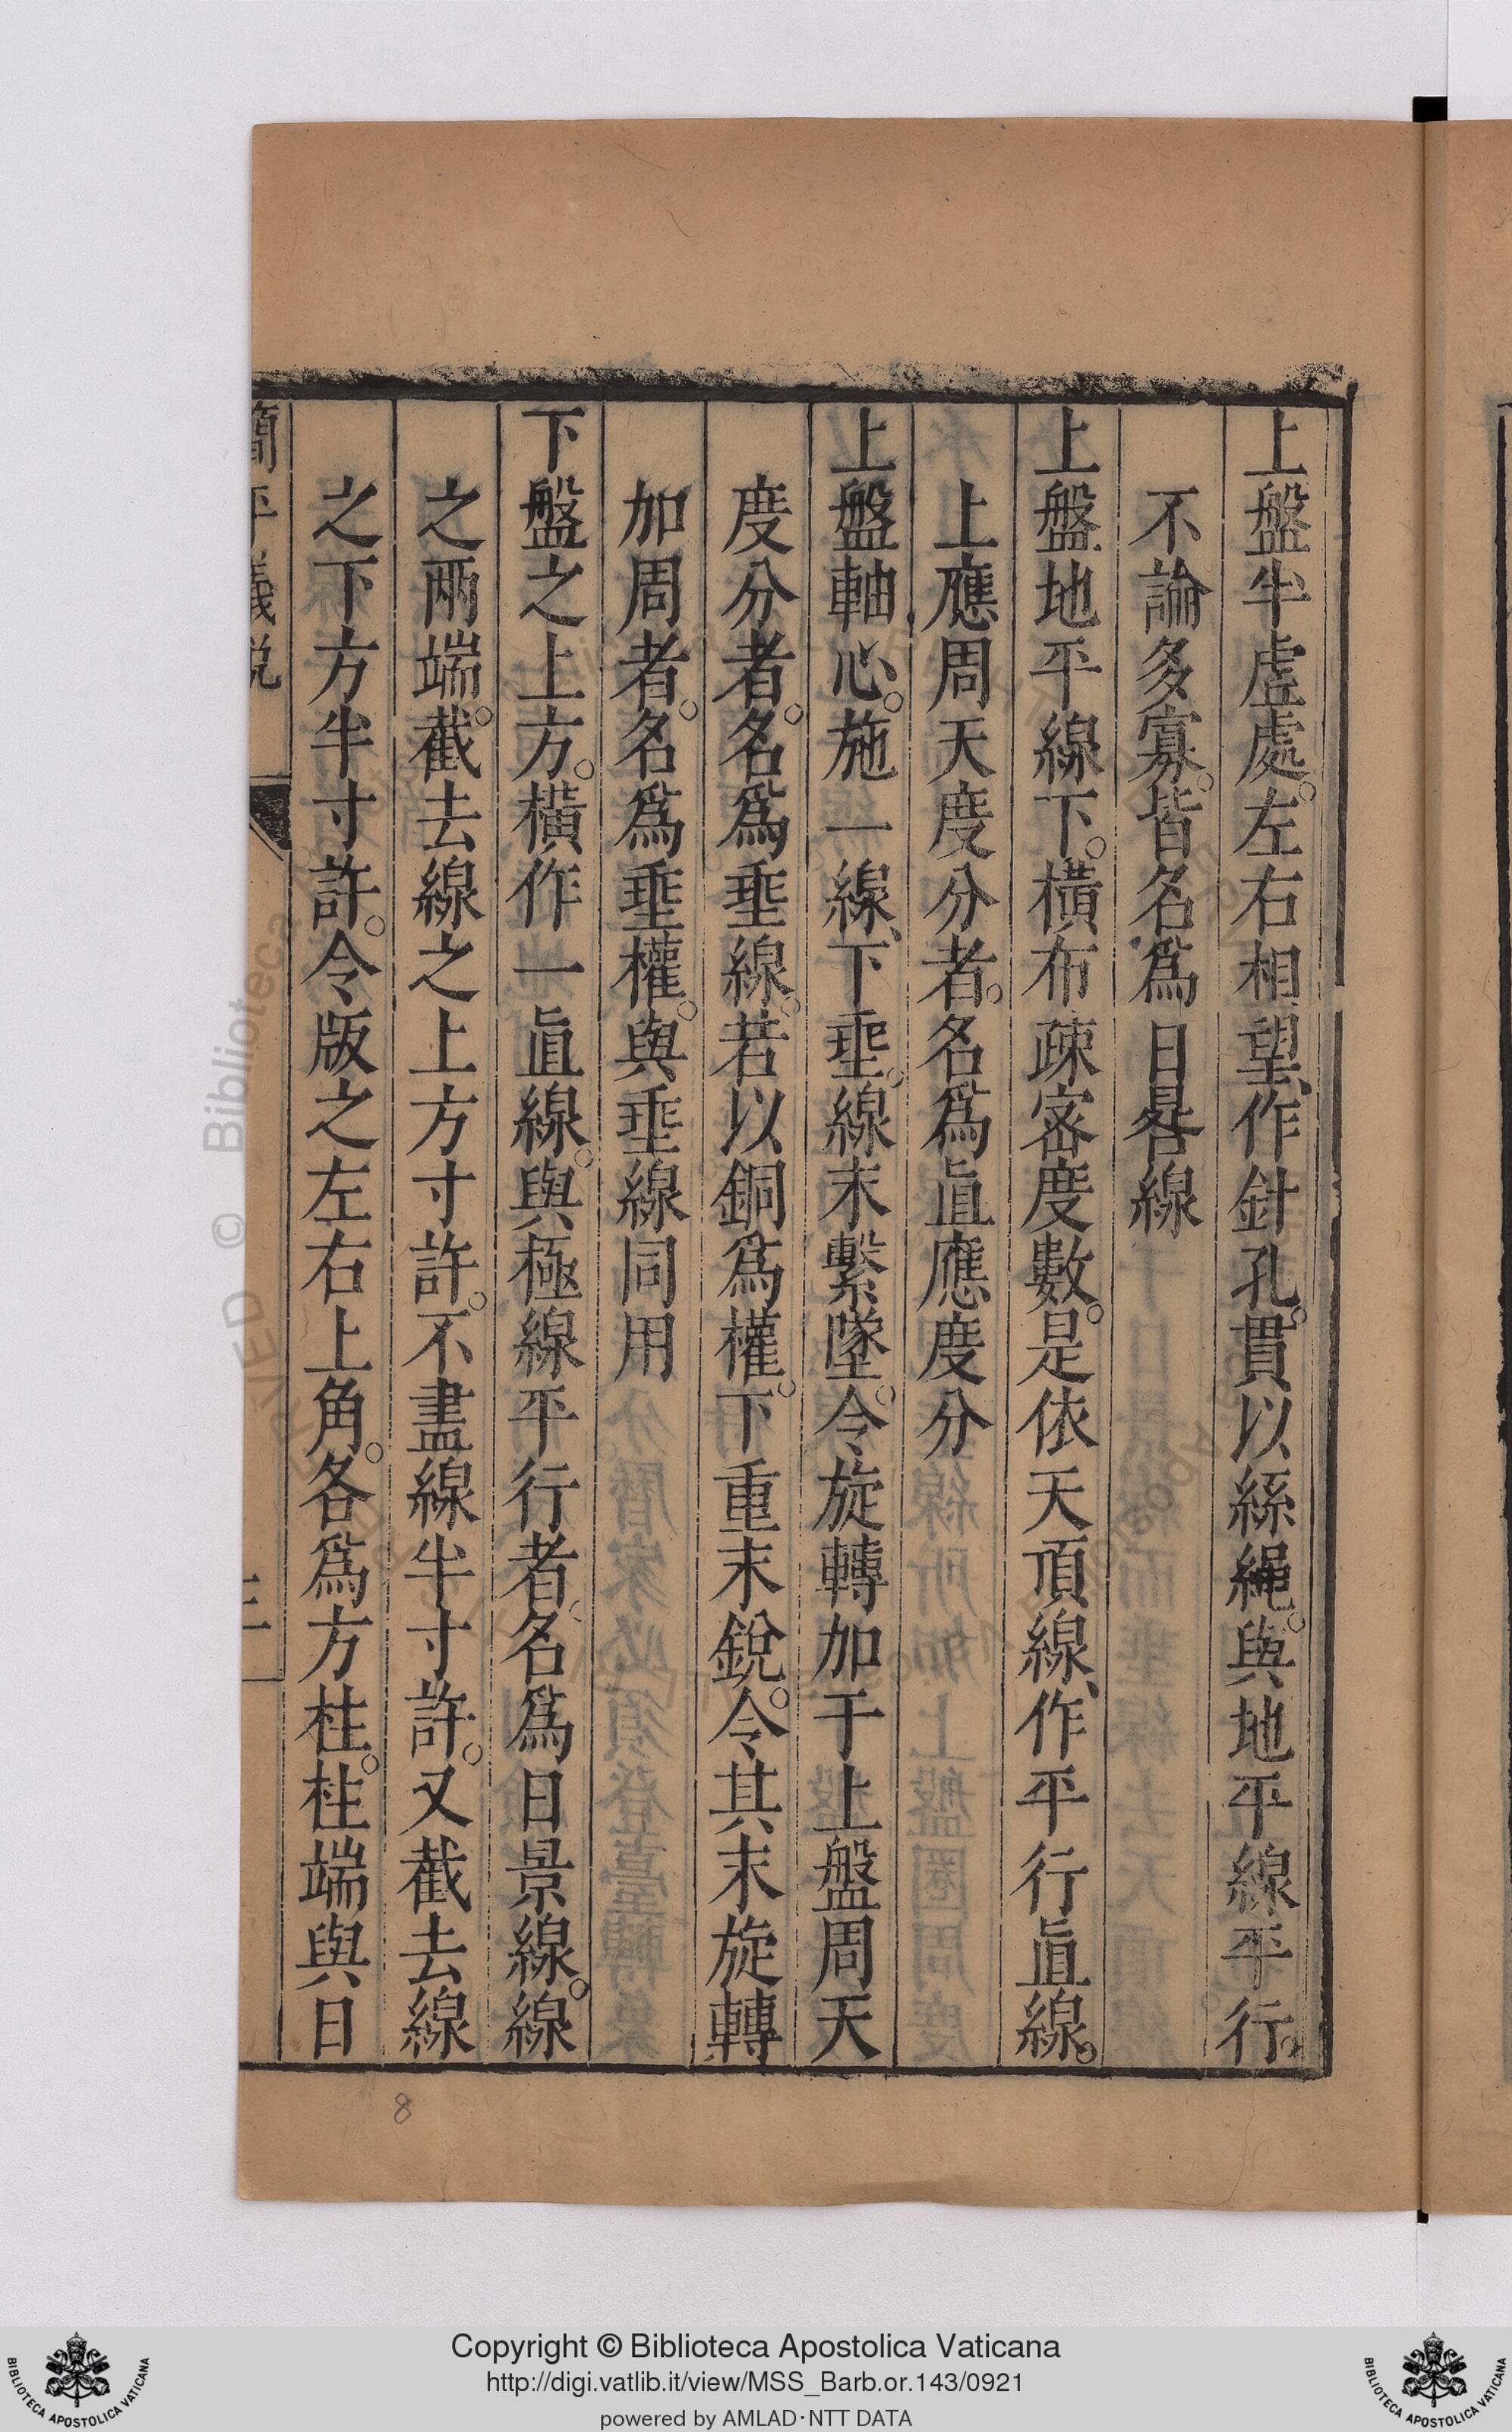 上盤半虛處。左右相望、作針孔。貫以絲繩。與地平線平行。
不論多寡。皆名爲日晷線
上盤地平線下。橫布疎密度數。是依天頂線、作平行直線。
上應周天度分者。名爲直應度分
上盤軸心。施一線、下垂。線末繫墜。令旋轉加于上盤周天
度分者。名爲垂線。若以銅爲權。下重末銳。令其末旋轉
加周者。名爲垂權。與垂線同用
下盤之上方。橫作一直線。與極線平行者。名爲日景線。線
之兩端。截去線之上方寸許。不盡線半寸許。又截去線
之下方半寸許。令版之左右上角。各爲方柱。柱端與日
簡平儀說
三
8
© Biblioteca
Copyright © Biblioteca Apostolica Vaticana
http://digi.vatlib.it/view/MSS_Barb.or.143/0921
powered by AMLAD·NTT DATA
BIBLIOTECA APOSTOLICA VATICANA
BIBLIOTECA APOSTOLICA VATICANA